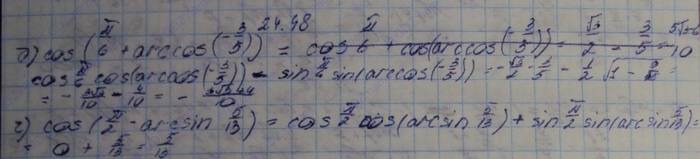 24.48
д) cos(π/6 + arccos(-3/5)) = cos π/6 + cos(arccos(-3/5)) = √3/2 - 3/5 =
cos π/6 cos(arccos(-3/5)) - sin π/6 sin(arccos(-3/5)) = -√3/2 · 3/5 - 1/2 √1 -
г) cos(π/2 - arcsin 5/13) = cos π/2 cos(arcsin 5/13) + sin π/2 sin(arcsin 5/13) =
= 0 + 5/13 = 5/13